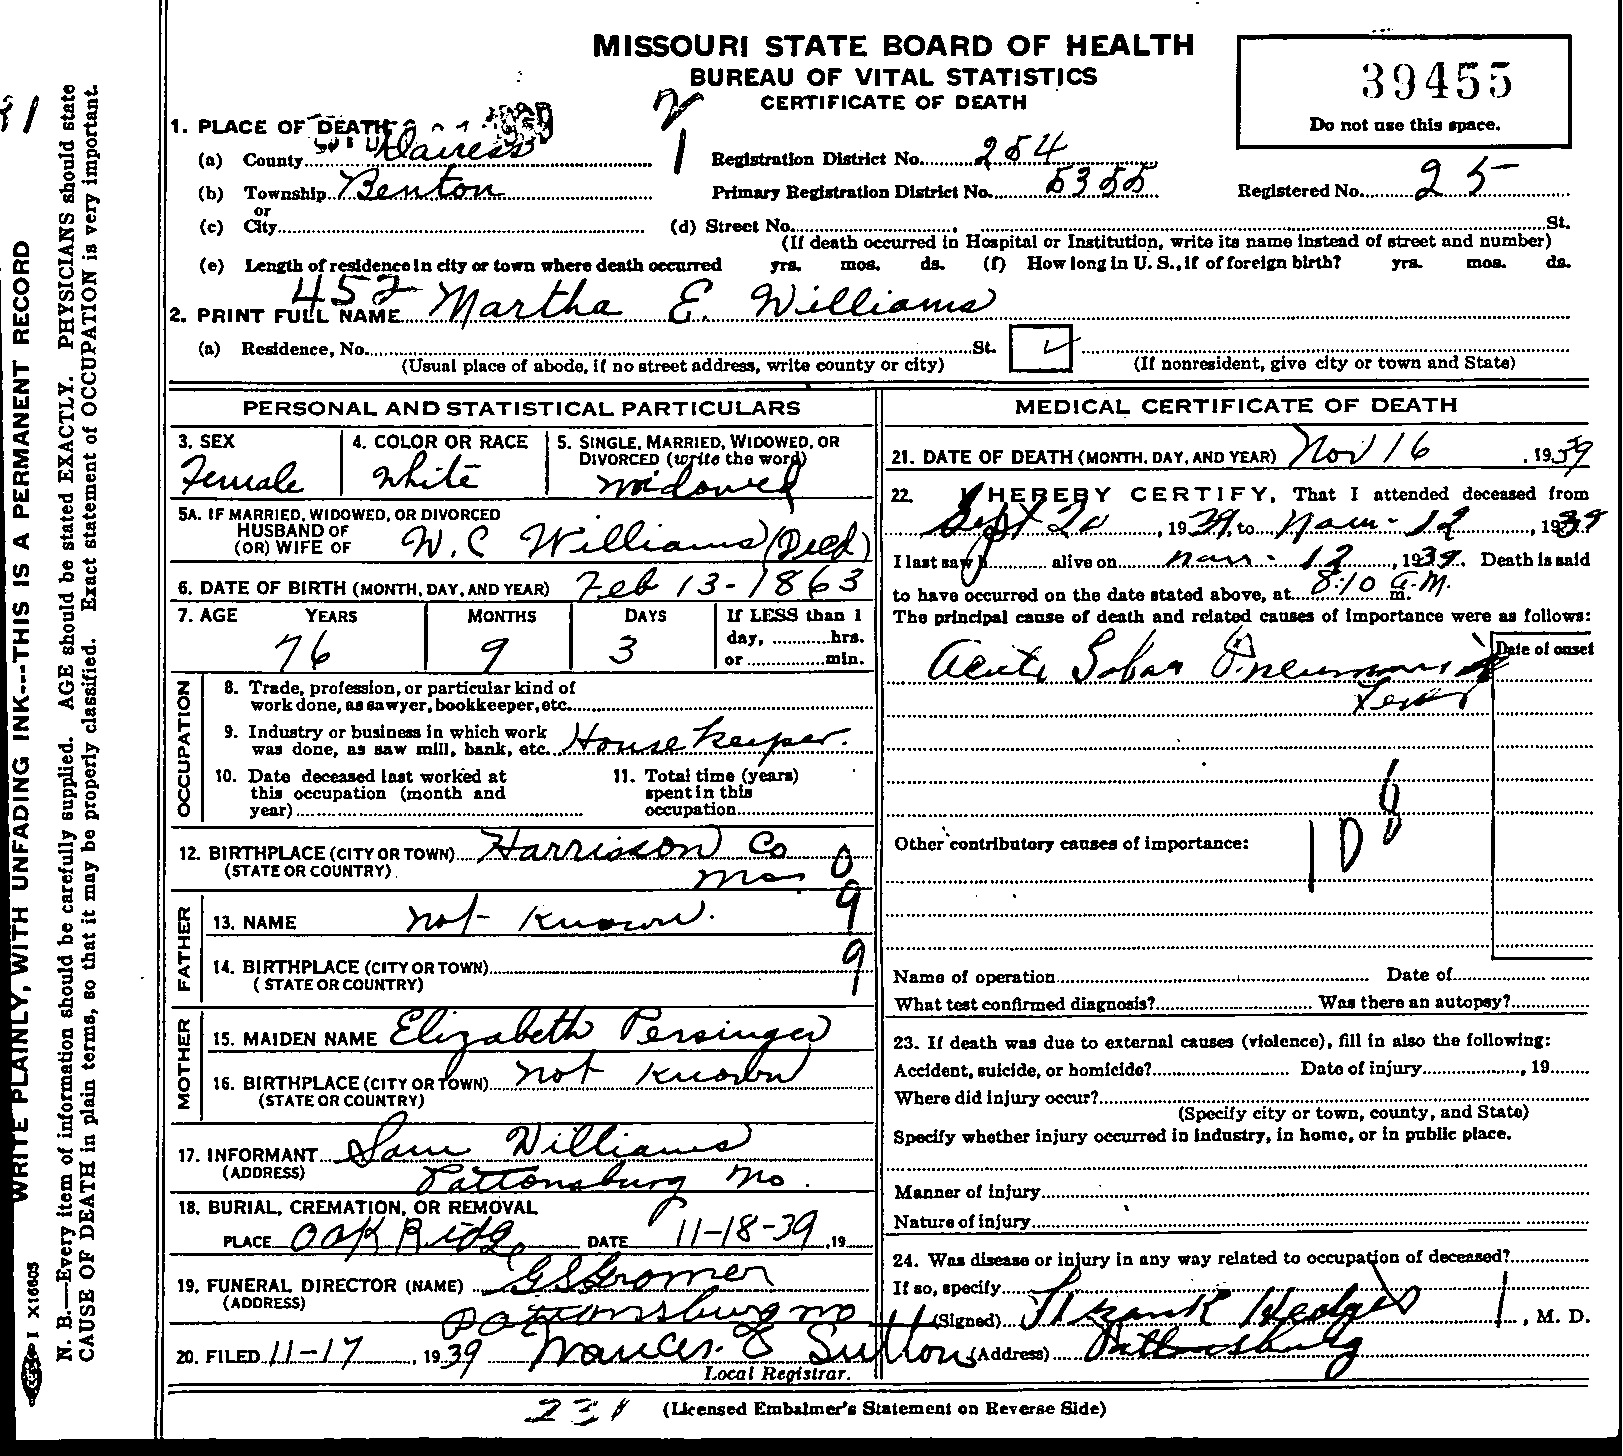 MISSOURI STATE BOARD OF HEALTH
BUREAU OF VITAL STATISTICS
CERTIFICATE OF DEATH
39455
Do not use this space.
1. PLACE OF DEATH
(a) County Daviess
Registration District No. 254
(b) Township Benton
Primary Registration District No. 5355
Registered No. 25
or
(c) City
(d) Street No. St.
(If death occurred in Hospital or Institution, write its name instead of street and number)
(e) Length of residence in city or town where death occurred yrs. mos. ds. (f) How long in U. S., if of foreign birth? yrs. mos. ds.
452
2. PRINT FULL NAME Martha E. Williams
(a) Residence, No. St.
(Usual place of abode, if no street address, write county or city) (If nonresident, give city or town and State)
PERSONAL AND STATISTICAL PARTICULARS
3. SEX
Female
4. COLOR OR RACE
White
5. SINGLE, MARRIED, WIDOWED, OR
DIVORCED (write the word)
Widowed
5A. IF MARRIED, WIDOWED, OR DIVORCED
HUSBAND OF
(OR) WIFE OF W. C Williams (Decd)
6. DATE OF BIRTH (MONTH, DAY, AND YEAR) Feb 13-1863
7. AGE YEARS MONTHS DAYS If LESS than 1
day, hrs.
or min.
76 9 3
OCCUPATION
8. Trade, profession, or particular kind of
work done, as sawyer, bookkeeper, etc.
9. Industry or business in which work
was done, as saw mill, bank, etc. House keeper.
10. Date deceased last worked at
this occupation (month and
year)
11. Total time (years)
spent in this
occupation
12. BIRTHPLACE (CITY OR TOWN) Harrison Co
(STATE OR COUNTRY) Mo. 0
FATHER
13. NAME not known. 9
14. BIRTHPLACE (CITY OR TOWN) 9
(STATE OR COUNTRY)
MOTHER
15. MAIDEN NAME Elizabeth Persinger
16. BIRTHPLACE (CITY OR TOWN) not known
(STATE OR COUNTRY)
17. INFORMANT Sam Williams
(ADDRESS) Pattonsburg Mo.
18. BURIAL, CREMATION, OR REMOVAL
PLACE Oak Ridge DATE 11-18-39, 19
19. FUNERAL DIRECTOR (NAME) G S Gromer
(ADDRESS) Pattonsburg mo
20. FILED 11-17, 1939 Sutton
Local Registrar.
MEDICAL CERTIFICATE OF DEATH
21. DATE OF DEATH (MONTH, DAY, AND YEAR) Nov 16, 1939
22. I HEREBY CERTIFY, That I attended deceased from
Sept 20, 1939, to Nov - 12, 1939
I last saw h alive on Nov - 12, 1939. Death is said
to have occurred on the date stated above, at 8:10 a.m.
The principal cause of death and related causes of importance were as follows:
Date of onset
Acute Lobar Pneumonia
108
Other contributory causes of importance:
Name of operation Date of
What test confirmed diagnosis? Was there an autopsy?
23. If death was due to external causes (violence), fill in also the following:
Accident, suicide, or homicide? Date of injury, 19
Where did injury occur?
(Specify city or town, county, and State)
Specify whether injury occurred in industry, in home, or in public place.
Manner of injury
Nature of injury
24. Was disease or injury in any way related to occupation of deceased?
If so, specify
(Signed) Frank Hedges, M. D.
(Address) Pattonsburg
231 (Licensed Embalmer's Statement on Reverse Side)
WRITE PLAINLY, WITH UNFADING INK---THIS IS A PERMANENT RECORD
N. B.—Every item of information should be carefully supplied. AGE should be stated EXACTLY. PHYSICIANS should state
CAUSE OF DEATH in plain terms, so that it may be properly classified. Exact statement of OCCUPATION is very important.
I X16605